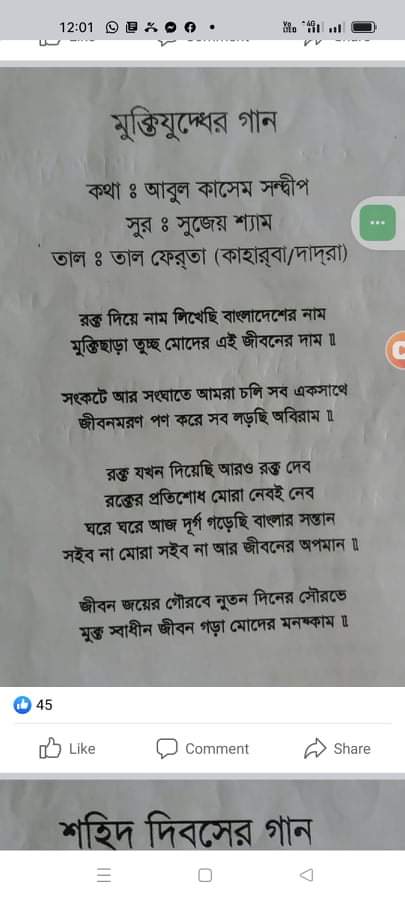 12:01
Vo LTE 4G
Like Comment Share
মুক্তিযুদ্ধের গান
কথা ঃ আবুল কাসেম সন্দ্বীপ
সুর ঃ সুজেয় শ্যাম
তাল ঃ তাল ফের্‌তা (কাহার্‌বা/দাদ্‌রা)
রক্ত দিয়ে নাম লিখেছি বাংলাদেশের নাম
মুক্তিছাড়া তুচ্ছ মোদের এই জীবনের দাম ॥
সংকটে আর সংঘাতে আমরা চলি সব একসাথে
জীবনমরণ পণ করে সব লড়ছি অবিরাম ॥
রক্ত যখন দিয়েছি আরও রক্ত দেব
রক্তের প্রতিশোধ মোরা নেবই নেব
ঘরে ঘরে আজ দূর্গ গড়েছি বাংলার সন্তান
সইব না মোরা সইব না আর জীবনের অপমান ॥
জীবন জয়ের গৌরবে নুতন দিনের সৌরভে
মুক্ত স্বাধীন জীবন গড়া মোদের মনষ্কাম ॥
45
Like Comment Share
শহিদ দিবসের গান